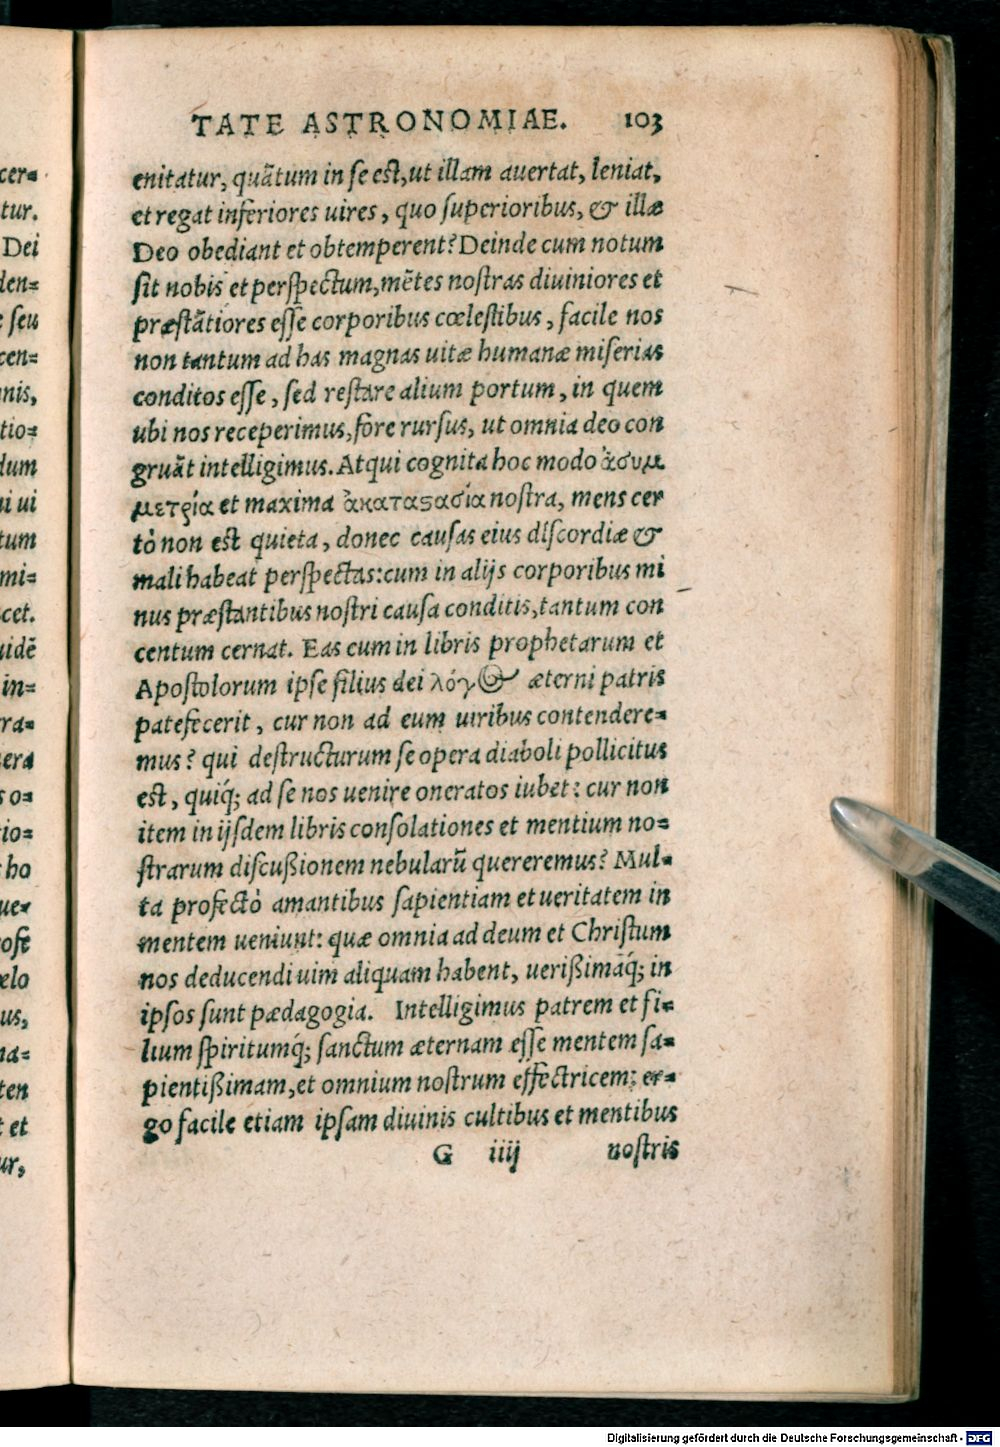 TATE ASTRONOMIAE. 103
enitatur, quātum in se est, ut illam auertat, leniat,
et regat inferiores uires, quo superioribus, & illæ
Deo obediant et obtemperent? Deinde cum notum
sit nobis et perspectum, mētes nostras diuiniores et
præstātiores esse corporibus cœlestibus, facile nos
non tantum ad has magnas uitæ humanæ miserias
conditos esse, sed restare alium portum, in quem
ubi nos receperimus, fore rursus, ut omnia deo con
gruāt intelligimus. Atqui cognita hoc modo ἀσυμ
μετρία et maxima ἀκαταξασία nostra, mens cer
tò non est quieta, donec causas eius discordiæ &
mali habeat perspectas: cum in alijs corporibus mi
nus præstantibus nostri causa conditis, tantum con
centum cernat. Eas cum in libris prophetarum et
Apostolorum ipse filius dei λόγος æterni patris
patefecerit, cur non ad eum uiribus contendere=
mus? qui destructurum se opera diaboli pollicitus
est, quiq́; ad se nos uenire oneratos iubet: cur non
item in ijsdem libris consolationes et mentium no=
strarum discußionem nebularū quereremus? Mul=
ta profectò amantibus sapientiam et ueritatem in
mentem ueniunt: quæ omnia ad deum et Christum
nos deducendi uim aliquam habent, uerißimaq́; in
ipsos sunt pædagogia. Intelligimus patrem et fi=
lium spiritumq́; sanctum æternam esse mentem sa=
pientißimam, et omnium nostrum effectricem: er=
go facile etiam ipsam diuinis cultibus et mentibus
G iiij nostris
cer=
tur.
Dei
den=
seu
cen=
nis,
tio=
dum
ui ui
tum
mi=
cet.
uidē
in=
ra=
era
so=
io=
ho
ue=
ofe
elo
us,
na=
ten
t et
ur,
Digitalisierung gefördert durch die Deutsche Forschungsgemeinschaft - DFG